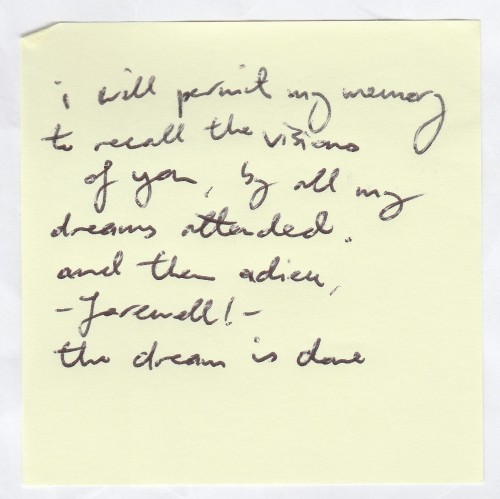 i will permit my memory
to recall the visions
of you, by all my
dreams attended.
and then adieu,
-farewell!-
the dream is done